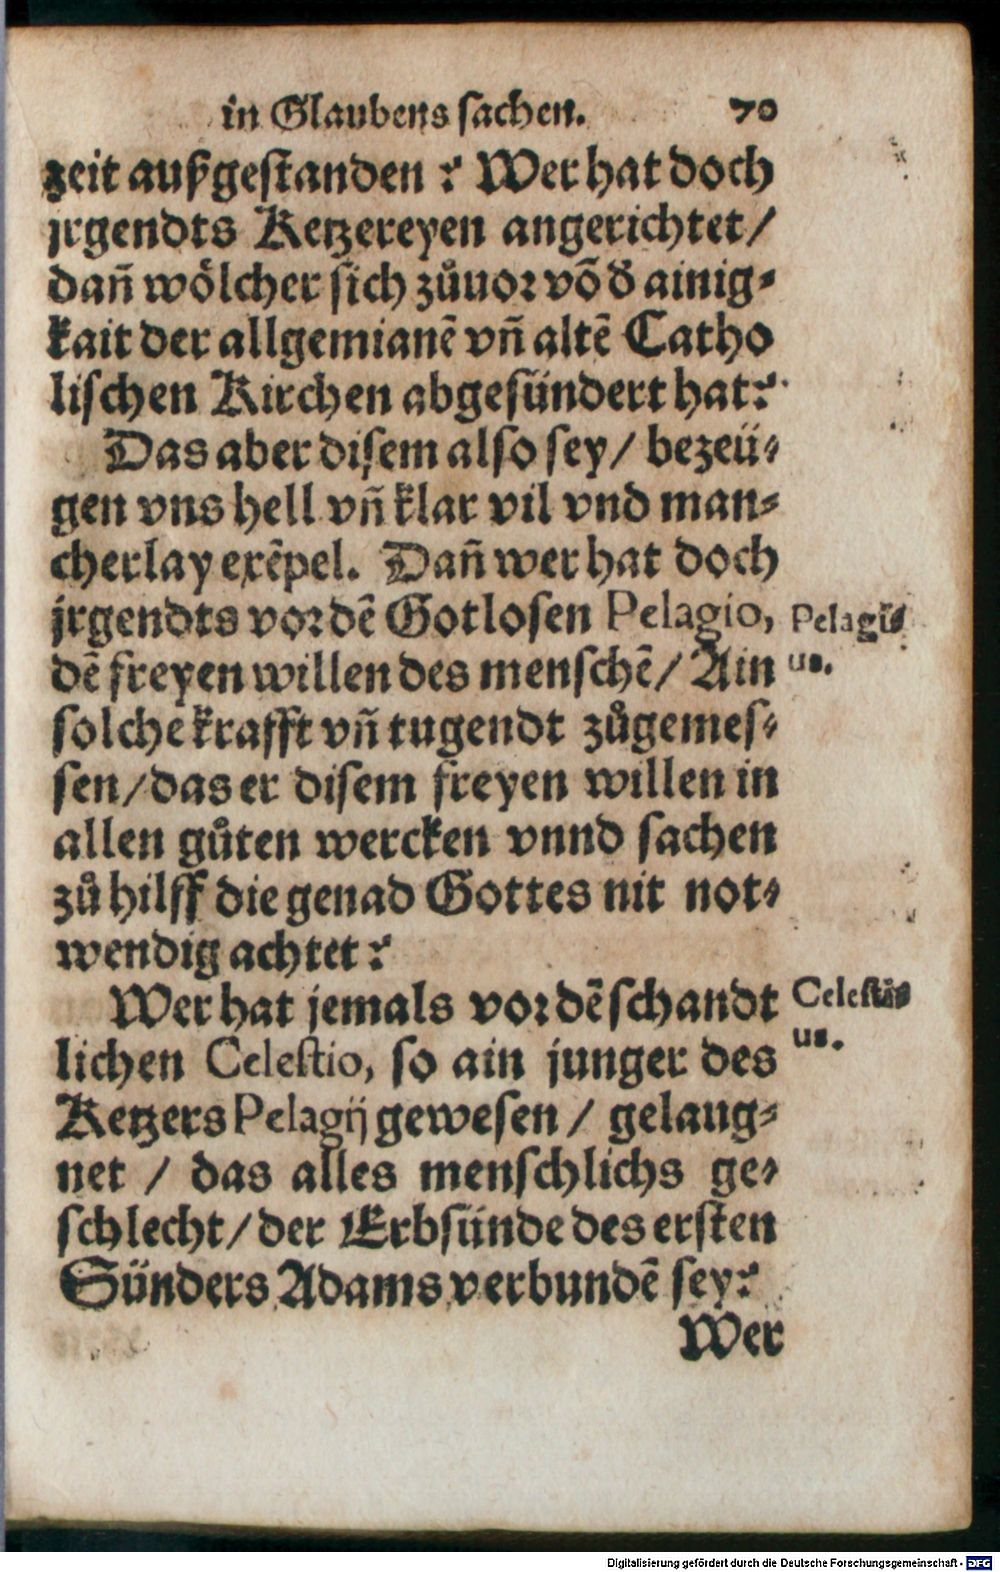 in Glaubens sachen. 70
zeit außgestanden? Wer hat doch
jrgendts Ketzereyen angerichtet/
dañ wölcher sich zůuor võ d̄ ainig-
kait der allgemianē vñ altē Catho
lischen Kirchen abgesündert hat?
Das aber disem also sey/ bezeü-
gen vns hell vñ klar vil vnd man-
cherlay exēpel. Dañ wer hat doch
jrgendts vor dē Gotlosen Pelagio,
dē freyen willen des menschē/ Ain
solche krafft vñ tugendt zůgemes-
sen/ das er disem freyen willen in
allen gůten wercken vnnd sachen
zů hilff die genad Gottes nit not-
wendig achtet?
Wer hat jemals vor dē schandt
lichen Celestio, so ain junger des
Ketzers Pelagij gewesen/ gelaug-
net / das alles menschlichs ge-
schlecht/ der Erbsünde des ersten
Sünders Adams verbundē sey?
Wer
Pelagi-
us.
Celesti-
us.
Digitalisierung gefördert durch die Deutsche Forschungsgemeinschaft - DFG